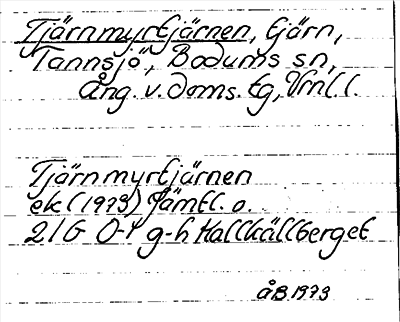 Tjärnmyrtjärnen, tjärn,
Tannsjö, Bodums sn,
Ång. v. doms. tg, Vrnl l.
Tjärnmyrtjärnen
ek (1973) Jämtl. o.
21G 0-1 g-h Kallkällberget
åB 1973